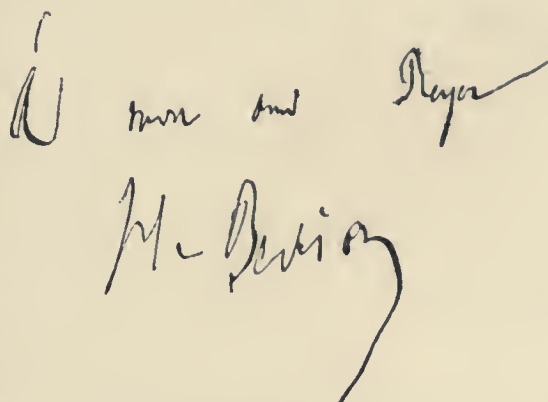 à mon ami Reyer
H. Berlioz